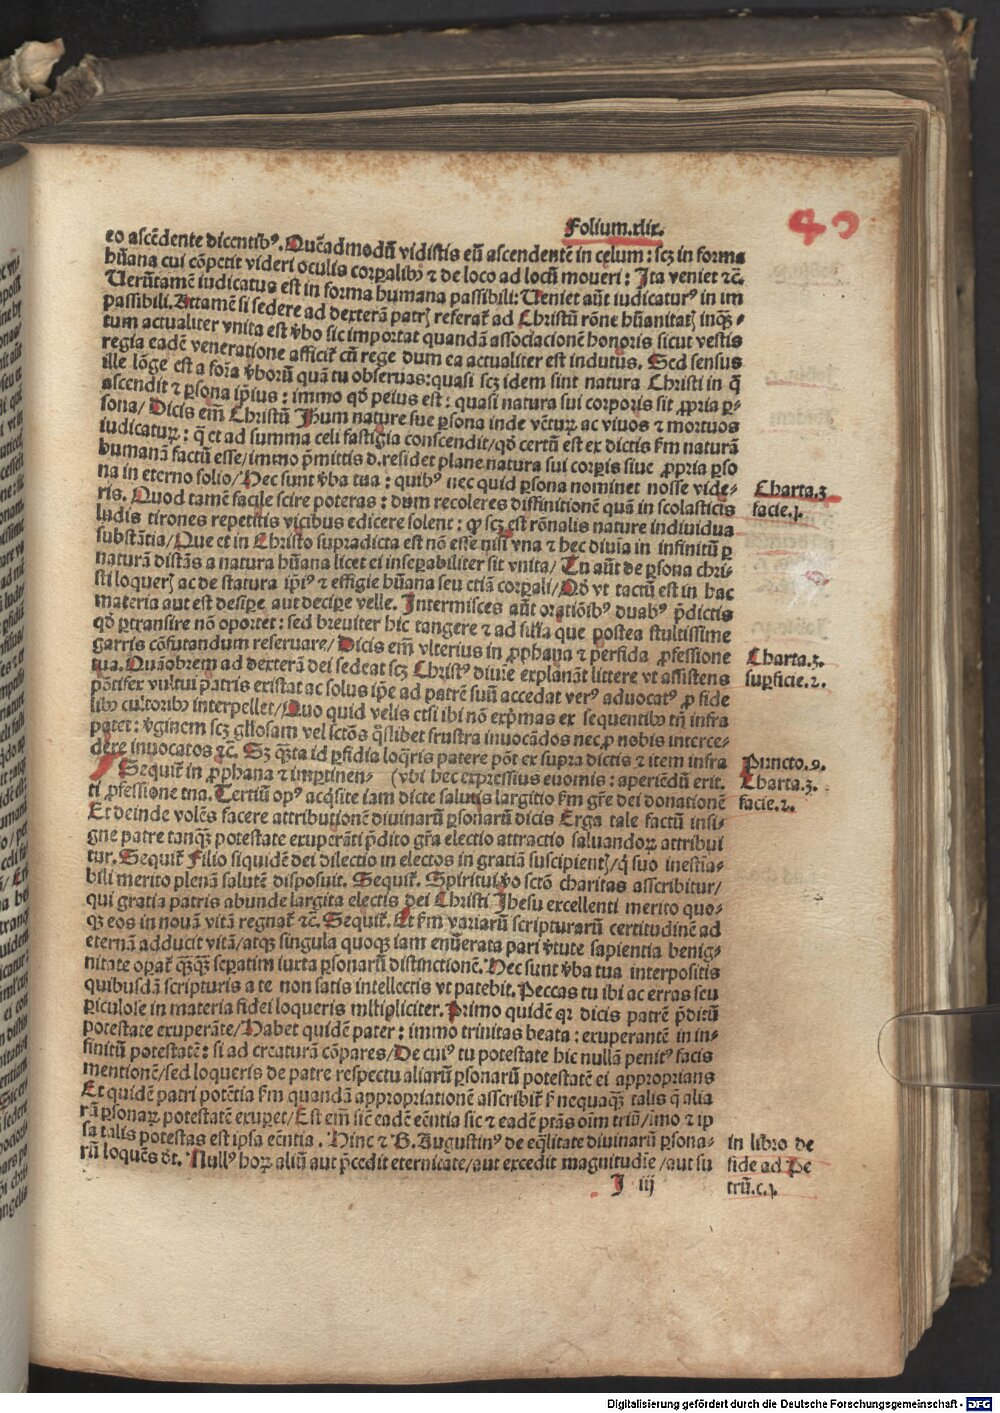 Folium.xlix.
49
eo ascēdente dicentibꝰ. Quēadmodū vidistis eū ascendentē in celum: scꝫ in forma
hūana cui cōpetit videri oculis corꝑalibꝰ ⁊ de loco ad locū moueri: Ita veniet ⁊c̄.
Uerūtamē iudicatus est in forma humana passibili: Ueniet aūt iudicaturꝰ in im
passibili. Attamē si sedere ad dexterā patrꝭ referat᷑ ad Christū rōne hūanitatꝭ inqꝫ⸗
tum actualiter vnita est v̄bo sic importat quandā associationē honoris sicut vestis
regia eadē veneratione afficit᷑ cū rege dum ea actualiter est indutus. Sed sensus
ille lōge est a foꝛa v̄borū quā tu obseruas: quasi scꝫ idem sint natura Christi in q̄
ascendit ⁊ ꝑsona ip̄ius: immo qđ peius est: quasi natura sui corporis sit ꝓpria ꝑ⸗
sona/ Dicis em̄ Christū Jh̄um nature sue ꝑsona inde vēturꝝ ac viuos ⁊ mortuos
iudicaturꝝ: q̄ et ad summa celi fastigia conscendit/qđ certū est ex dictis ẜm naturā
humanā factū esse/immo p̄mittis d. residet plane natura sui corꝑis siue ꝓpria ꝑso
na in eterno solio/Hec sunt v̄ba tua: quibꝰ nec quid ꝑsona nominet nosse vide⸗
ris. Quod tamē facile scire poteras: dum recoleres diffinitionē quā in scolasticis
ludis tirones repetitis vicibus edicere solent: ꝙ scꝫ est rōnalis nature indiuidua
substātia/Que et in Christo supradicta est nō esse nisi vna ⁊ hec diuīa in infinitū ꝑ
naturā distās a natura hūana licet ei inseꝑabiliter sit vnita/ Tu aūt de ꝑsona chri⸗
sti loquerꝭ ac de statura ip̄iꝰ ⁊ effigie hūana seu etiā corꝑali/Qđ vt tactū est in hac
materia aut est desipe, aut decipe velle. Intermisces aūt oratiōibꝰ duabꝰ p̄dictis
qđ ꝑtransire nō oportet: sed breuiter hic tangere ⁊ ad filia que postea stultissime
garris cōfutandum reseruare/ Dicis em̄ vlterius in ꝓphana ⁊ perfida ꝓfessione
tua. Quāobrem ad dexterā dei sedeat scꝫ Christꝰ diuīe explanāt littere vt assistens
pōtifex vultui patris existat ac solus ip̄e ad patrē suū accedat verꝰ aduocatꝰ ꝓ fide
libꝰ cultoribꝰ interpellet/Quo quid velis etsi ibi nō exp̄mas ex sequentibꝰ tn̄ infra
patet: v̄ginem scꝫ gl̄iosam vel sctōs q̄slibet frustra inuocādos nec ꝓ nobis interce⸗
dere inuocatos ⁊c̄. Sꝫ q̄sta id ꝑfidia loq̄ris patere pōt ex supra dictis ⁊ item infra
Sequit᷑ in ꝓphana ⁊ imꝑtinen⸗ (vbi hec expressius euomis: aperiēdū erit.
ti ꝓfessione tua. Tertiū opꝰ acq̄site iam dicte salutis largitio ẜm gr̄e dei donationē
Et deinde volēs facere attributionē diuinarū ꝑsonarū dicis Erga tale factū insi⸗
gne patre tanqꝫ̄ potestate exuperāti p̄dito gr̄a electio attractio saluandoꝝ attribui
tur. Sequit᷑ Filio siquidē dei dilectio in electos in gratiā suscipientꝭ/q̄ suo inestīa⸗
bili merito plenā salutē disposuit. Sequit᷑. Spiritui v̄o sctō charitas asscribitur/
qui gratia patris abunde largita electis dei Christi Jhesu excellenti merito quo⸗
qꝫ eos in nouā vitā regnat᷑ ⁊c̄. Sequit᷑. Et ẜm variarū scripturarū certitudinē ad
eternā adducit vitā/atqꝫ singula quoqꝫ iam enūerata pari v̄tute sapientia benig⸗
nitate oꝑat᷑ q̄ꝫq̄ꝫ seꝑatim iuxta ꝑsonarū distinctionē. Hec sunt v̄ba tua interpositis
quibusdā scripturis a te non satis intellectis vt patebit. Peccas tu ibi ac erras seu
ꝑiculose in materia fidei loqueris mltipliciter. Primo quidē qꝛ dicis patrē p̄ditū
potestate exuperāte/Habet quidē pater: immo trinitas beata: exuperantē in in⸗
finitū potestatē: si ad creaturā cōpares/De cuiꝰ tu potestate hic nullā penitꝰ facis
mentionē/sed loqueris de patre respectu aliarū ꝑsonarū potestatē ei approprians
Et quidē patri potētia ẜm quandā appropriationē asscribit᷑ ẜ nequaqꝫ̄ talis q̄ alia
rū ꝑsonaꝝ potestatē exupet/Est em̄ sic̄ eadē eēntia sic ⁊ eadē p̄tās oīm triū/imo ⁊ ip
sa talis potestas est ipsa eēntia. Hinc ⁊ B. Augustinꝰ de eq̄litate diuinarū ꝑsona⸗
rū loquēs dt̄. Nullꝰ hoꝝ aliū aut p̄cedit eternitate/aut excedit magnitudīe/aut su
J iij
Charta.3.
facie.j.
Charta.3.
suꝑficie.2.
Puncto.9.
Charta.3.
facie.2.
in libro de
fide ad Pe
trū.c.j.
Digitalisierung gefördert durch die Deutsche Forschungsgemeinschaft - DFG